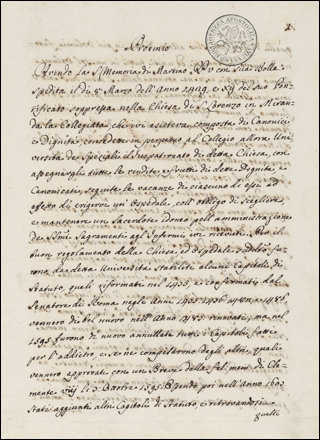 1
Proemio
Avendo la S. Memoria di Martino PP. V con Sua Bolla
spedita li di 8 Marzo dell'Anno 1429 e XII del suo Pon-
tificato soppressa nella Chiesa di S. Lorenzo in Miran-
da la Collegiata, che ivi esisteva composta di Canonici
e Dignità, concedere in perpetuo al Collegio allora Uni-
versità dei Speziali il juspatronato di detta Chiesa, con
assegnargli tutte le rendite, e frutti di dette Dignità, e
Canonicati, seguite le vacanze di ciascuno di essi ad
effetto di erigervi un Ospedale, coll'obbligo di scegliere,
e mantenere un Sacerdote idoneo per l'amministrazione
de SSmi Sagramenti agl'Infermi in
buon regolamento della Chiesa ed ospedale
rono da detta Università stabiliti alcuni Capitoli di
Statuto, quali riformati nel 1435, e confermati dal
Senatore di Roma negli Anni
vennero di bel nuovo nell'Anno 1487 rinnovati, ma nel
1595 furono di nuovo annullati tutti i Capitoli fatti
per l'addietro, e se ne compilarono degli altri, quali
vennero approvati con un Breve della fel. mem. di Cle-
mente VIII li 3 8bre 1595. Essendo poi nell'Anno 1607
state aggiunte altri Capitoli di Statuto, e ritrovandosi
quelli